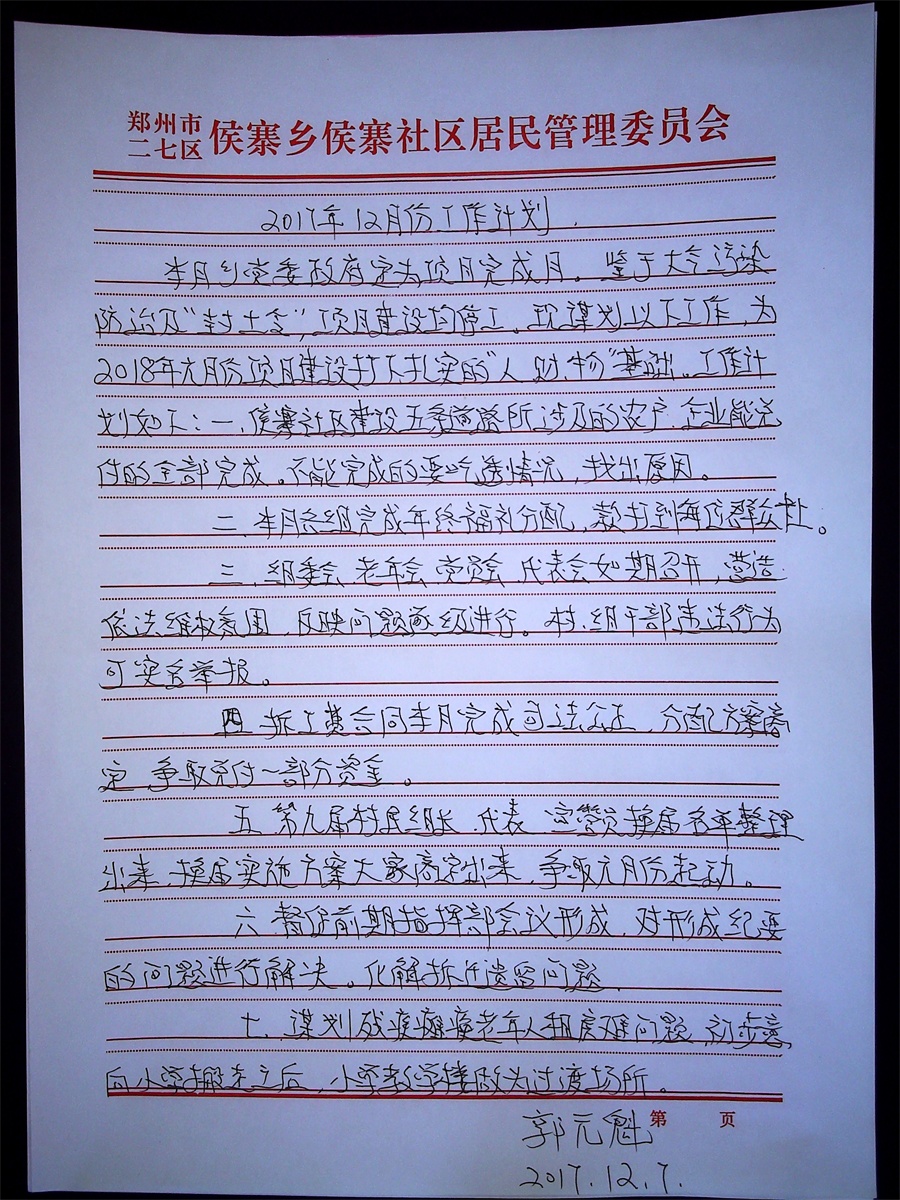 郑州市
二七区 侯寨乡侯寨社区居民管理委员会
2017年12月份工作计划
本月乡党委政府定为项目完成月。鉴于大气污染
防治及“封土令”,项目建设均停工。现谋划以下工作,为
2018年元月份项目建设打下扎实的“人、财、物”基础。工作计
划如下:一、侯寨社区建设五条道路所涉及的农户、企业能兑
付的全部完成。不能完成的要吃透情况,找出原因。
二、本月各组完成年终福礼分配,款打到每位群众卡。
三、组委会、老年会、党员会、代表会如期召开,营造
依法维权氛围,反映问题逐级进行。村、组干部违法行为
可实名举报。
四、拆工赁合同本月完成司法公正,分配方案商
定,争取兑付一部分资金。
五、第九届村民组长、代表、定员换届名单整理
出来,换届实施方案大家商定出来,争取元月份启动。
六、督促前期指挥部会议形成,对形成纪要
的问题进行解决。化解拆迁遗留问题。
七、谋划残疾瘫痪老年人租房难问题,初步意
向小学搬走之后,小学教学楼做为过渡场所。
第 页
郭元魁
2017.12.7.